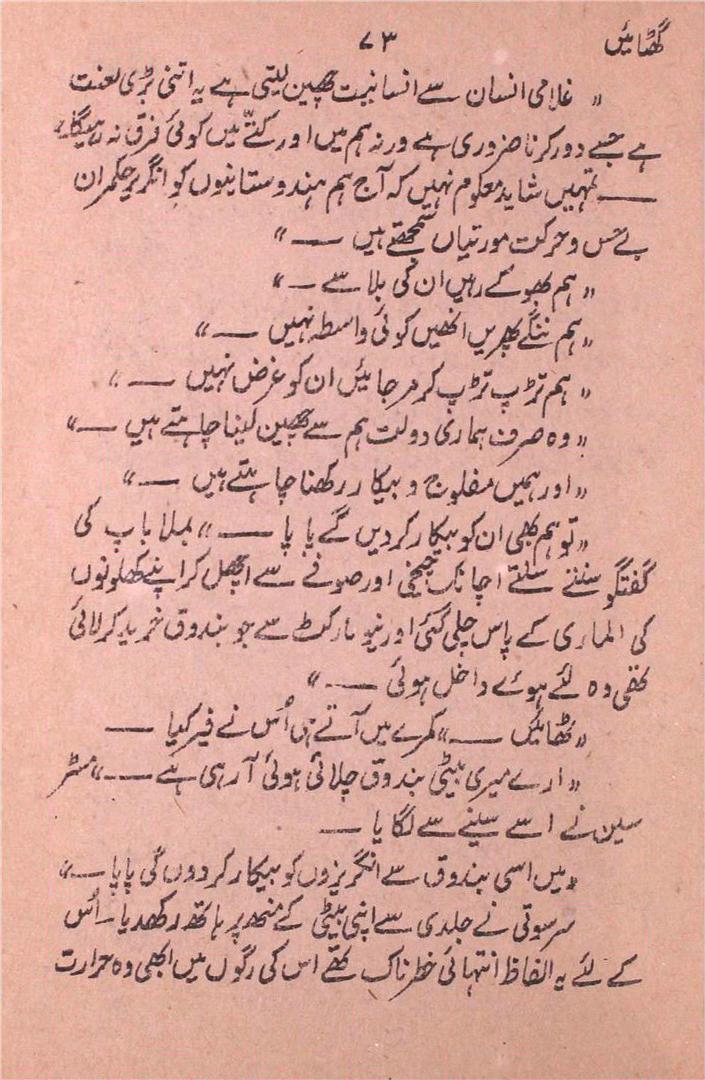 گھٹائیں ۷۳
” غلامی انسان سے انسانیت چھین لیتی ہے یہ اتنی بڑی لعنت
ہے جسے دور کرنا ضروری ہے ورنہ ہم میں اور کتّے میں کوئی فرق نہ رہیگا“
—— تمہیں شاید معلوم نہیں کہ آج ہم ہندوستانیوں کو انگریز حکمران
بے حس و حرکت مورتیاں سمجھتے ہیں ——“
”ہم بھوکے رہیں ان کی بلا سے —“
”ہم ننگے پھریں انھیں کوئی واسطہ نہیں ——“
”ہم تڑپ تڑپ کر مر جائیں ان کو غرض نہیں ——“
”وہ صرف ہماری دولت ہم سے چھین لینا چاہتے ہیں ——“
”اور ہمیں مفلوج و بیکار رکھنا چاہتے ہیں ——“
”تو ہم بھی ان کو بیکار کر دیں گے پاپا ——“ بملا باپ کی
گفتگو سنتے سنتے اچانک چیخی اور صوفے سے اچھل کر اپنے کھلونوں
کی الماری کے پاس چلی گئی اور نیو مارکٹ سے جو بندوق خرید کر لائی
تھی وہ لئے ہوئے داخل ہوئی ——“
”ٹھائیں ——“ کمرے میں آتے ہی اُس نے فیر کیا ——
”ارے میری بیٹی بندوق چلاتی ہوئی آ رہی ہے ——“ مسٹر
سین نے اسے سینے سے لگا یا ——
”میں اسی بندوق سے انگریزوں کو بیکار کر دوں گی پاپا ——“
سرسوتی نے جلدی سے اپنی بیٹی کے منھ پر ہاتھ رکھدیا۔ اُس
کے لئے یہ الفاظ انتہائی خطرناک تھے اس کی رگوں میں ابھی وہ حرارت